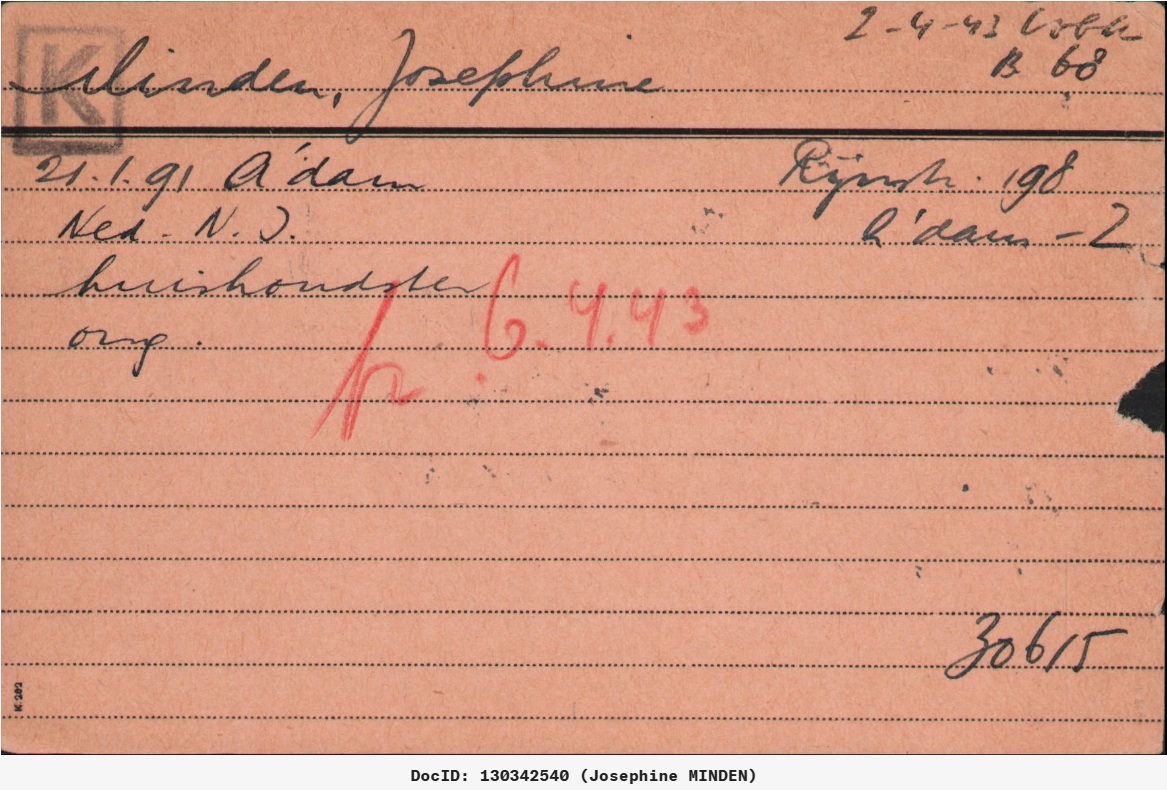 2-4-43 Wbk
B 68
K
Minden, Josephine
21.1.91 A'dam
Rijnstr. 198
Ned - N.I.
A'dam - Z
huishoudster
ong.
6.4.43
30615
K 202
DocID: 130342540 (Josephine MINDEN)